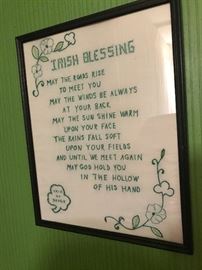 IRISH BLESSING
MAY THE ROADS RISE
TO MEET YOU
MAY THE WINDS BE ALWAYS
AT YOUR BACK
MAY THE SUN SHINE WARM
UPON YOUR FACE
THE RAINS FALL SOFT
UPON YOUR FIELDS
AND UNTIL WE MEET AGAIN
MAY GOD HOLD YOU
IN THE HOLLOW
OF HIS HAND